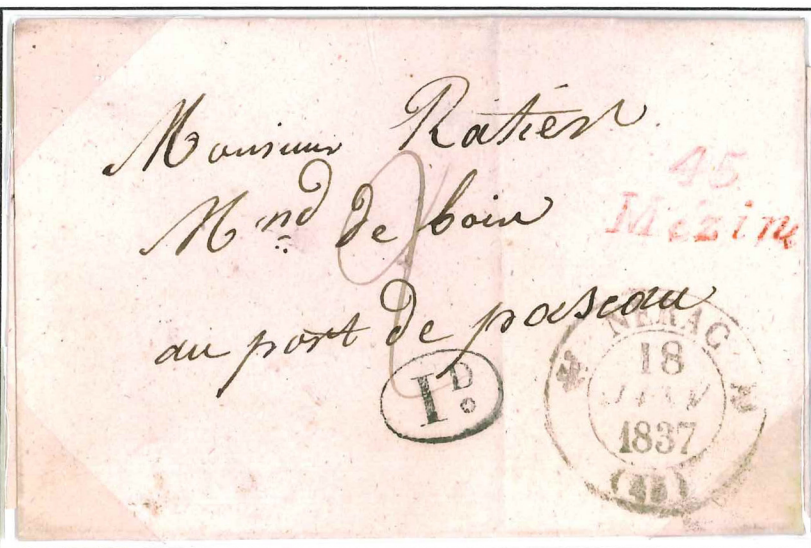 Monsieur Ratier
Mnd de bois
au port de pascau
45
Mézin
1D
NERAC
18
JANV
1837
(45)
2